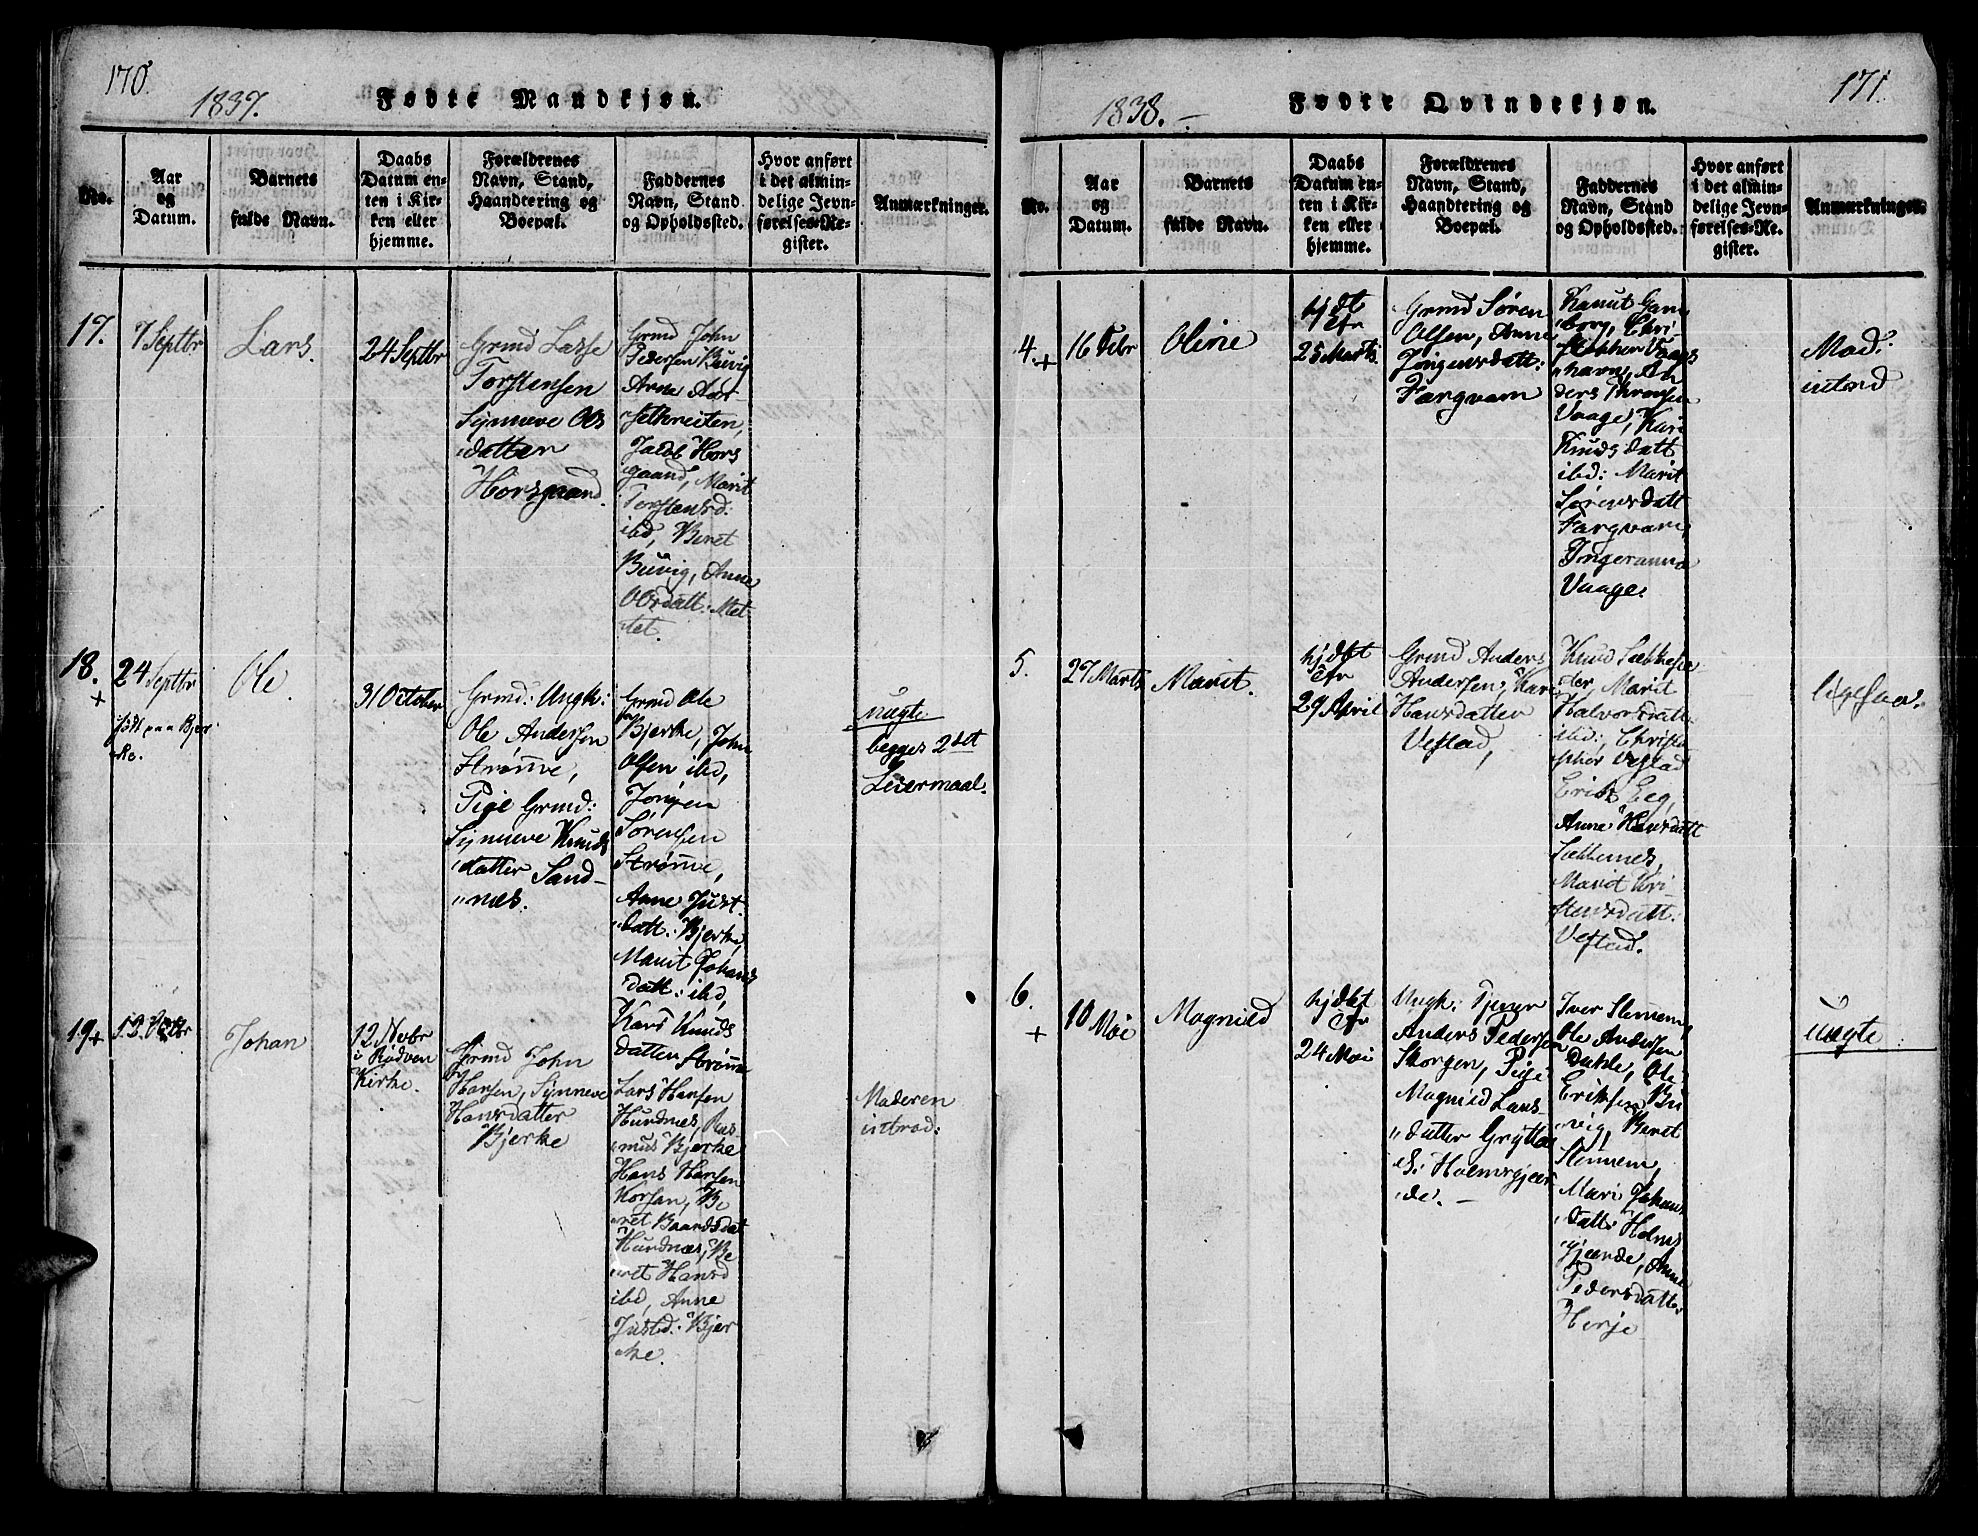 170.
1837.
Fødte Mandkjøn.
No.
Aar
og
Datum.
Barnets
fulde Navn.
Daabs
Datum en-
ten i Kir-
ken eller
hjemme.
Forældrenes
Navn, Stand,
Haandtering og
Boepæl.
Faddernes
Navn, Stand
og Opholdssted.
Hvor anført
i det almin-
delige Jevn-
førelses-Re-
gister.
Anmærkninger.
17.
7 Septbr
Lars.
24 Septbr
Grmd Lasse
Torstensen
Synneve Ols
datter
Horsgaard.
Grmd John
Pedersen Buvig
Arne
Jacob Hors
gaard, Marit
Torstensd:
ibd, Beret
Buvig, Anne
Olsdatt: Met
tet.
18.
+
24 Septbr
født paa Bjer
ke.
Ole.
31 October
Grmd: Ungk:
Ole Andersen
Strømme,
Pige Grmd:
Synneve Knuds
datter Sand-
nes.
Grmd Ole
Bjerke, John
Olsen ibd,
Jørgen
Sørensen
Strømme,
Anne Just
datt: Bjerke,
Marit Johans
datt: ibd,
Kari Knuds
datter Strømme
uægte
begges 2det
Leiermaal.
19+
12 Octbr
Johan
12 Novbr
i Rødven
Kirke.
Grmd John
Hansen, Synneve
Hansdatter
Bjerke
Lars Hansen
Hurdnes, Ras
mus Bjerke
Hans Hansen
Korsan, Be
ret Baardsdat
Hurdnæs, Be
ret Hansd
ibd, Anne
Justd: Bjer
ke.
Moderen
introd:
171.
1838.-
Fødte Qvindekjøn.
No.
Aar
og
Datum.
Barnets
fulde Navn.
Daabs
Datum en-
ten i Kir-
ken eller
hjemme.
Forældrenes
Navn, Stand,
Haandtering og
Boepæl.
Faddernes
Navn, Stand
og Opholdssted.
Hvor anført
i det almin-
delige Jevn-
førelses-Re-
gister.
Anmærkninger.
4.
+
16 Febr
Oline
hjdbt
Cfr
25 Marts
Grmd Søren
Olsen, Anne
Jørgensdatt:
Fargvarn
Knut Gam
borg, Chri
havn, An
ders Thronsen
Vaage, Kari
Knudsdatt
ibd: Marit
Sørensdatt
Fargvarn,
Ingeranna
Vaage.
Mod:
introd
5.
27 Marts
Marit.
hjdbt
Cfr
29 April
Grmd Anders
Andersen, Kari
Hansdatter
Vestad,
Knud Sækkese
ter, Marit
Halvorsdatt
ibd:, Christo
pher Vestad
Erik Eeg,
Anne Hansdatt
Sækkenes,
Marit Kri
stensdatt:
Vestad.
ligesaa.
6.
+
10 Mai
Magnild
hjdbt
Cfr
24 Mai
Ungk: Tjener
Anders Pedersen
Skorgen, Pige
Magnild Lars-
datter Grytta
E: Holmsgjær
de. -
Iver Stennem,
Ole Andersen
Dahle, Ole
Eriksen Bu
vig, Beret
Stennem,
Mari Johans
datt: Holms
gjærde, Anne
Pedersdatter
Herje
uægte